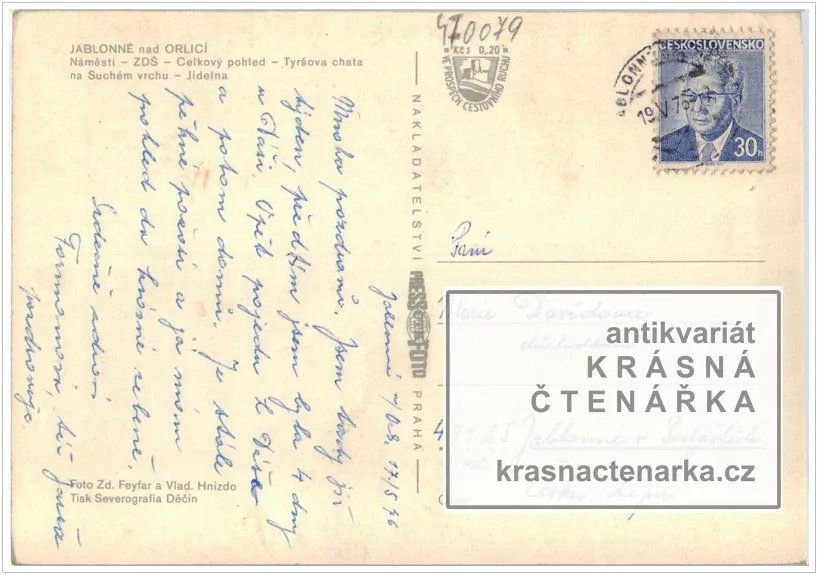 470079
JABLONNÉ nad ORLICÍ
Náměstí – ZDŠ – Celkový pohled – Tyršova chata
na Suchém vrchu – Jídelna
Kčs 0,20
VE PROSPĚCH CESTOVNÍHO RUCHU
ČESKOSLOVENSKO
30h
19.V.76
Jablonné n/Orl. 17/5 76
Mnoho pozdravů. Jsem tady již
týden, předtím jsem byla 4 dny
u Táši. Opět pojedu k Táše
a potom domů. Je stále
pěkné počasí a já mám
pohled do krásné zeleně.
Srdečně zdraví
pozdravuje.
NAKLADATELSTVÍ PRESSFOTO PRAHA
Paní
Marie Davidova
471 25 Jablonné v Podještědí
Česká Lípa
antikvariát
KRÁSNÁ
ČTENÁŘKA
krasnactenarka.cz
Foto Zd. Feyfar a Vlad. Hnízdo
Tisk Severografia Děčín